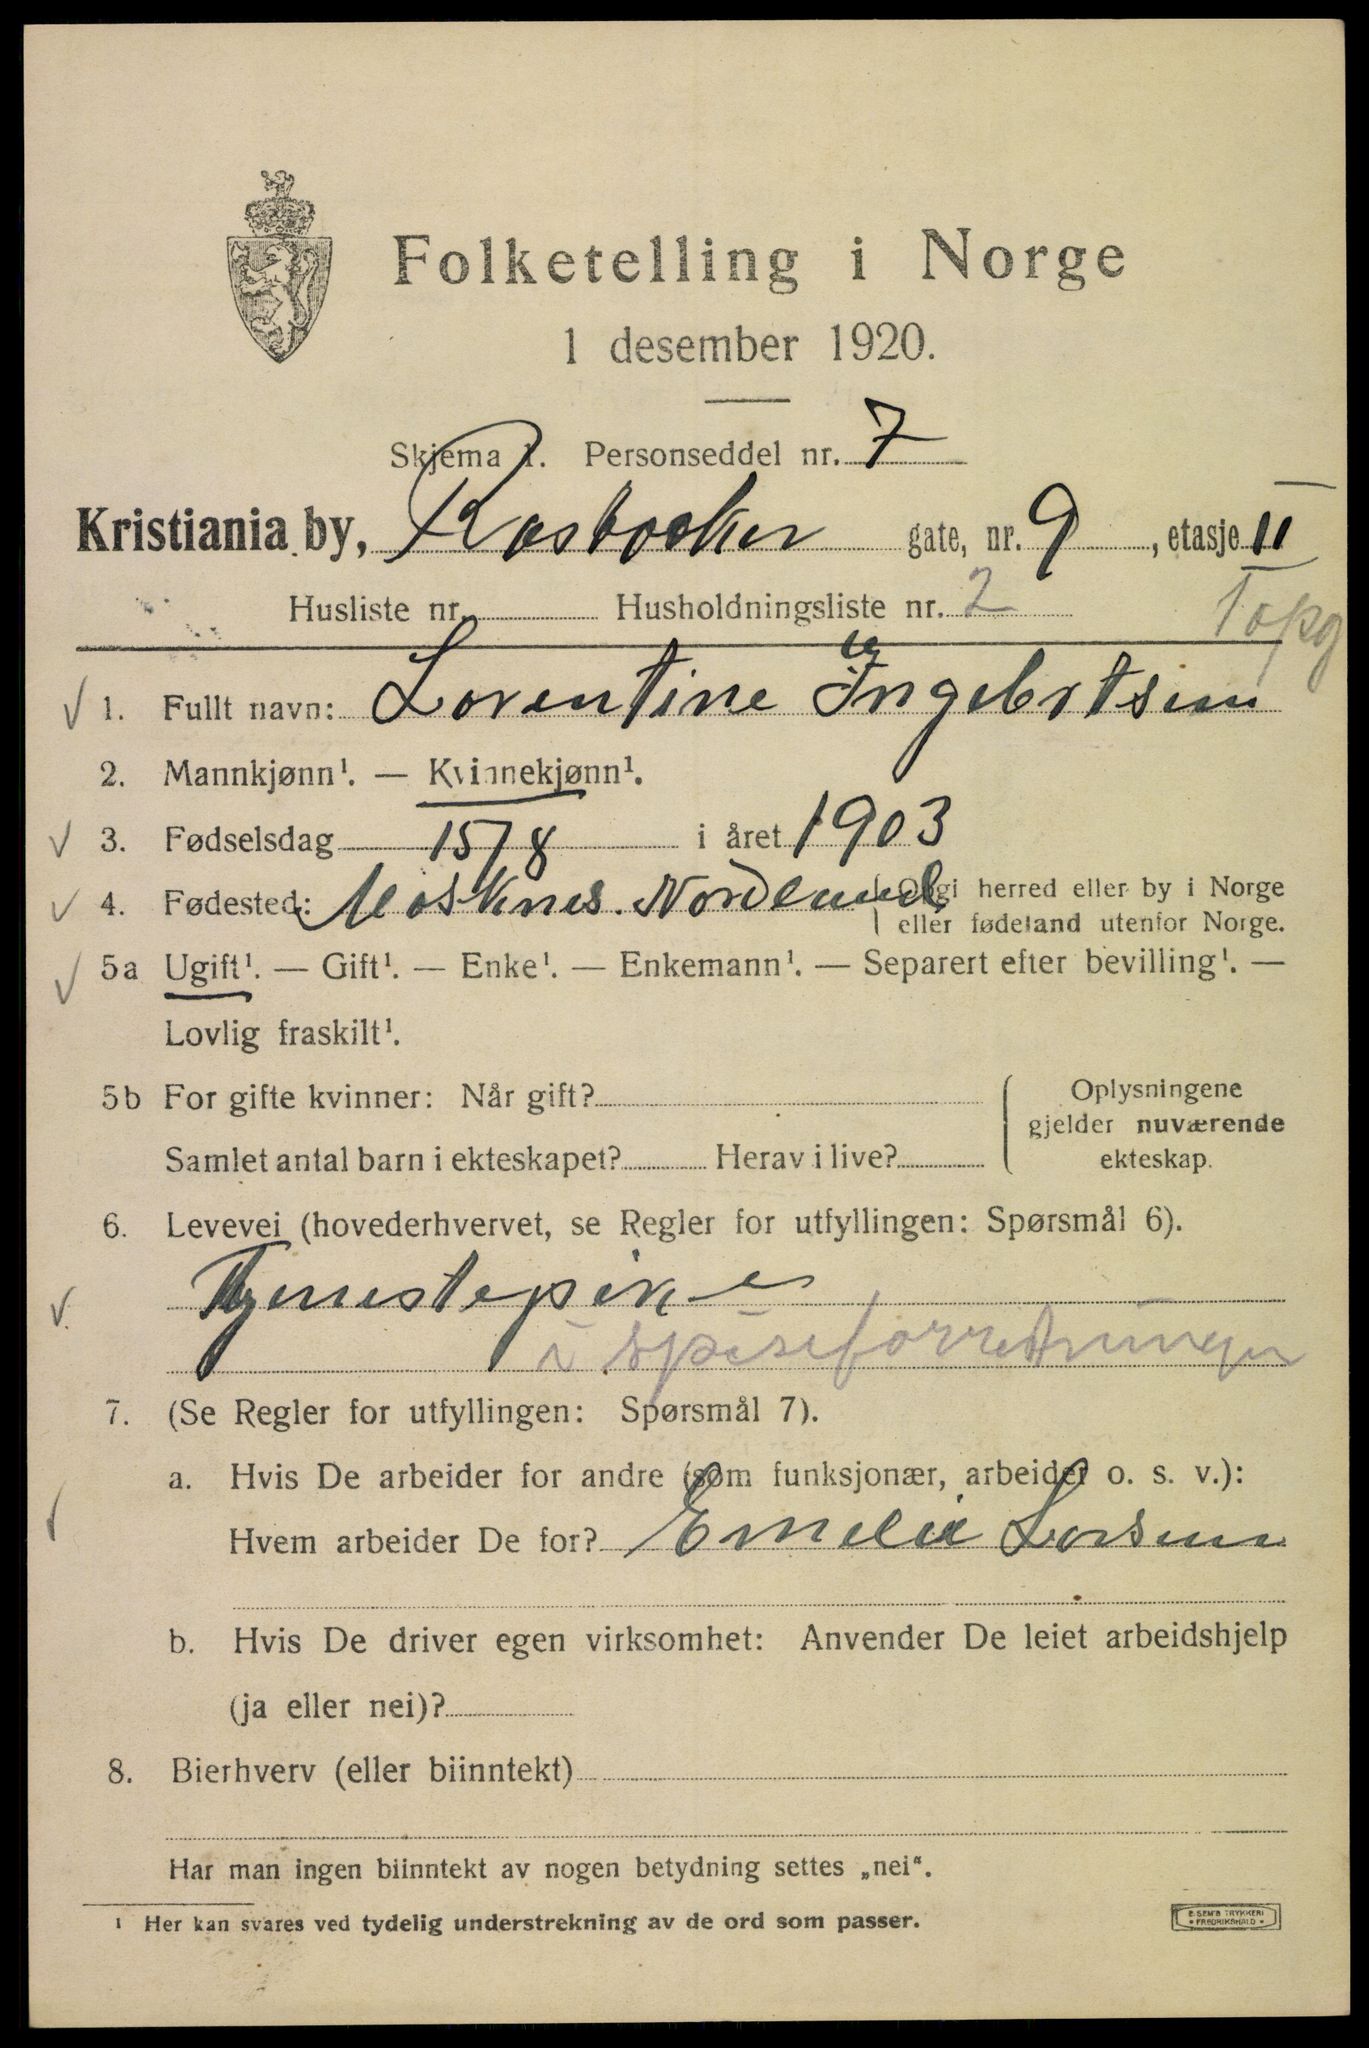 Folketelling i Norge
1 desember 1920.
Skjema 1. Personseddel nr. 7
Kristiania by, Rosbocker gate, nr. 9, etasje II
Husliste nr. Husholdningsliste nr. 2
1. Fullt navn: Lorentine Ingebrtsen
2. Mannkjønn¹. — Kvinnekjønn¹.
3. Fødselsdag 15/8 i året 1903
4. Fødested: Mosknes. Nordland { Opgi herred eller by i Norge
eller fødeland utenfor Norge.
5a Ugift¹. — Gift¹. — Enke¹. — Enkemann¹. — Separert efter bevilling¹. —
Lovlig fraskilt¹.
5b For gifte kvinner: Når gift? { Oplysningene
gjelder nuværende
Samlet antal barn i ekteskapet? Herav i live? ekteskap.
6. Levevei (hovederhvervet, se Regler for utfyllingen: Spørsmål 6).
Tjenestepike
i spiseforretningen
7. (Se Regler for utfyllingen: Spørsmål 7).
a. Hvis De arbeider for andre (som funksjonær, arbeider o. s. v.):
Hvem arbeider De for? Emelie Larsen
b. Hvis De driver egen virksomhet: Anvender De leiet arbeidshjelp
(ja eller nei)?
8. Bierhverv (eller biinntekt)
Har man ingen biinntekt av nogen betydning settes „nei“.
¹ Her kan svares ved tydelig understrekning av de ord som passer.
E. SEM'S TRYKKERI
• FREDRIKSHALD •